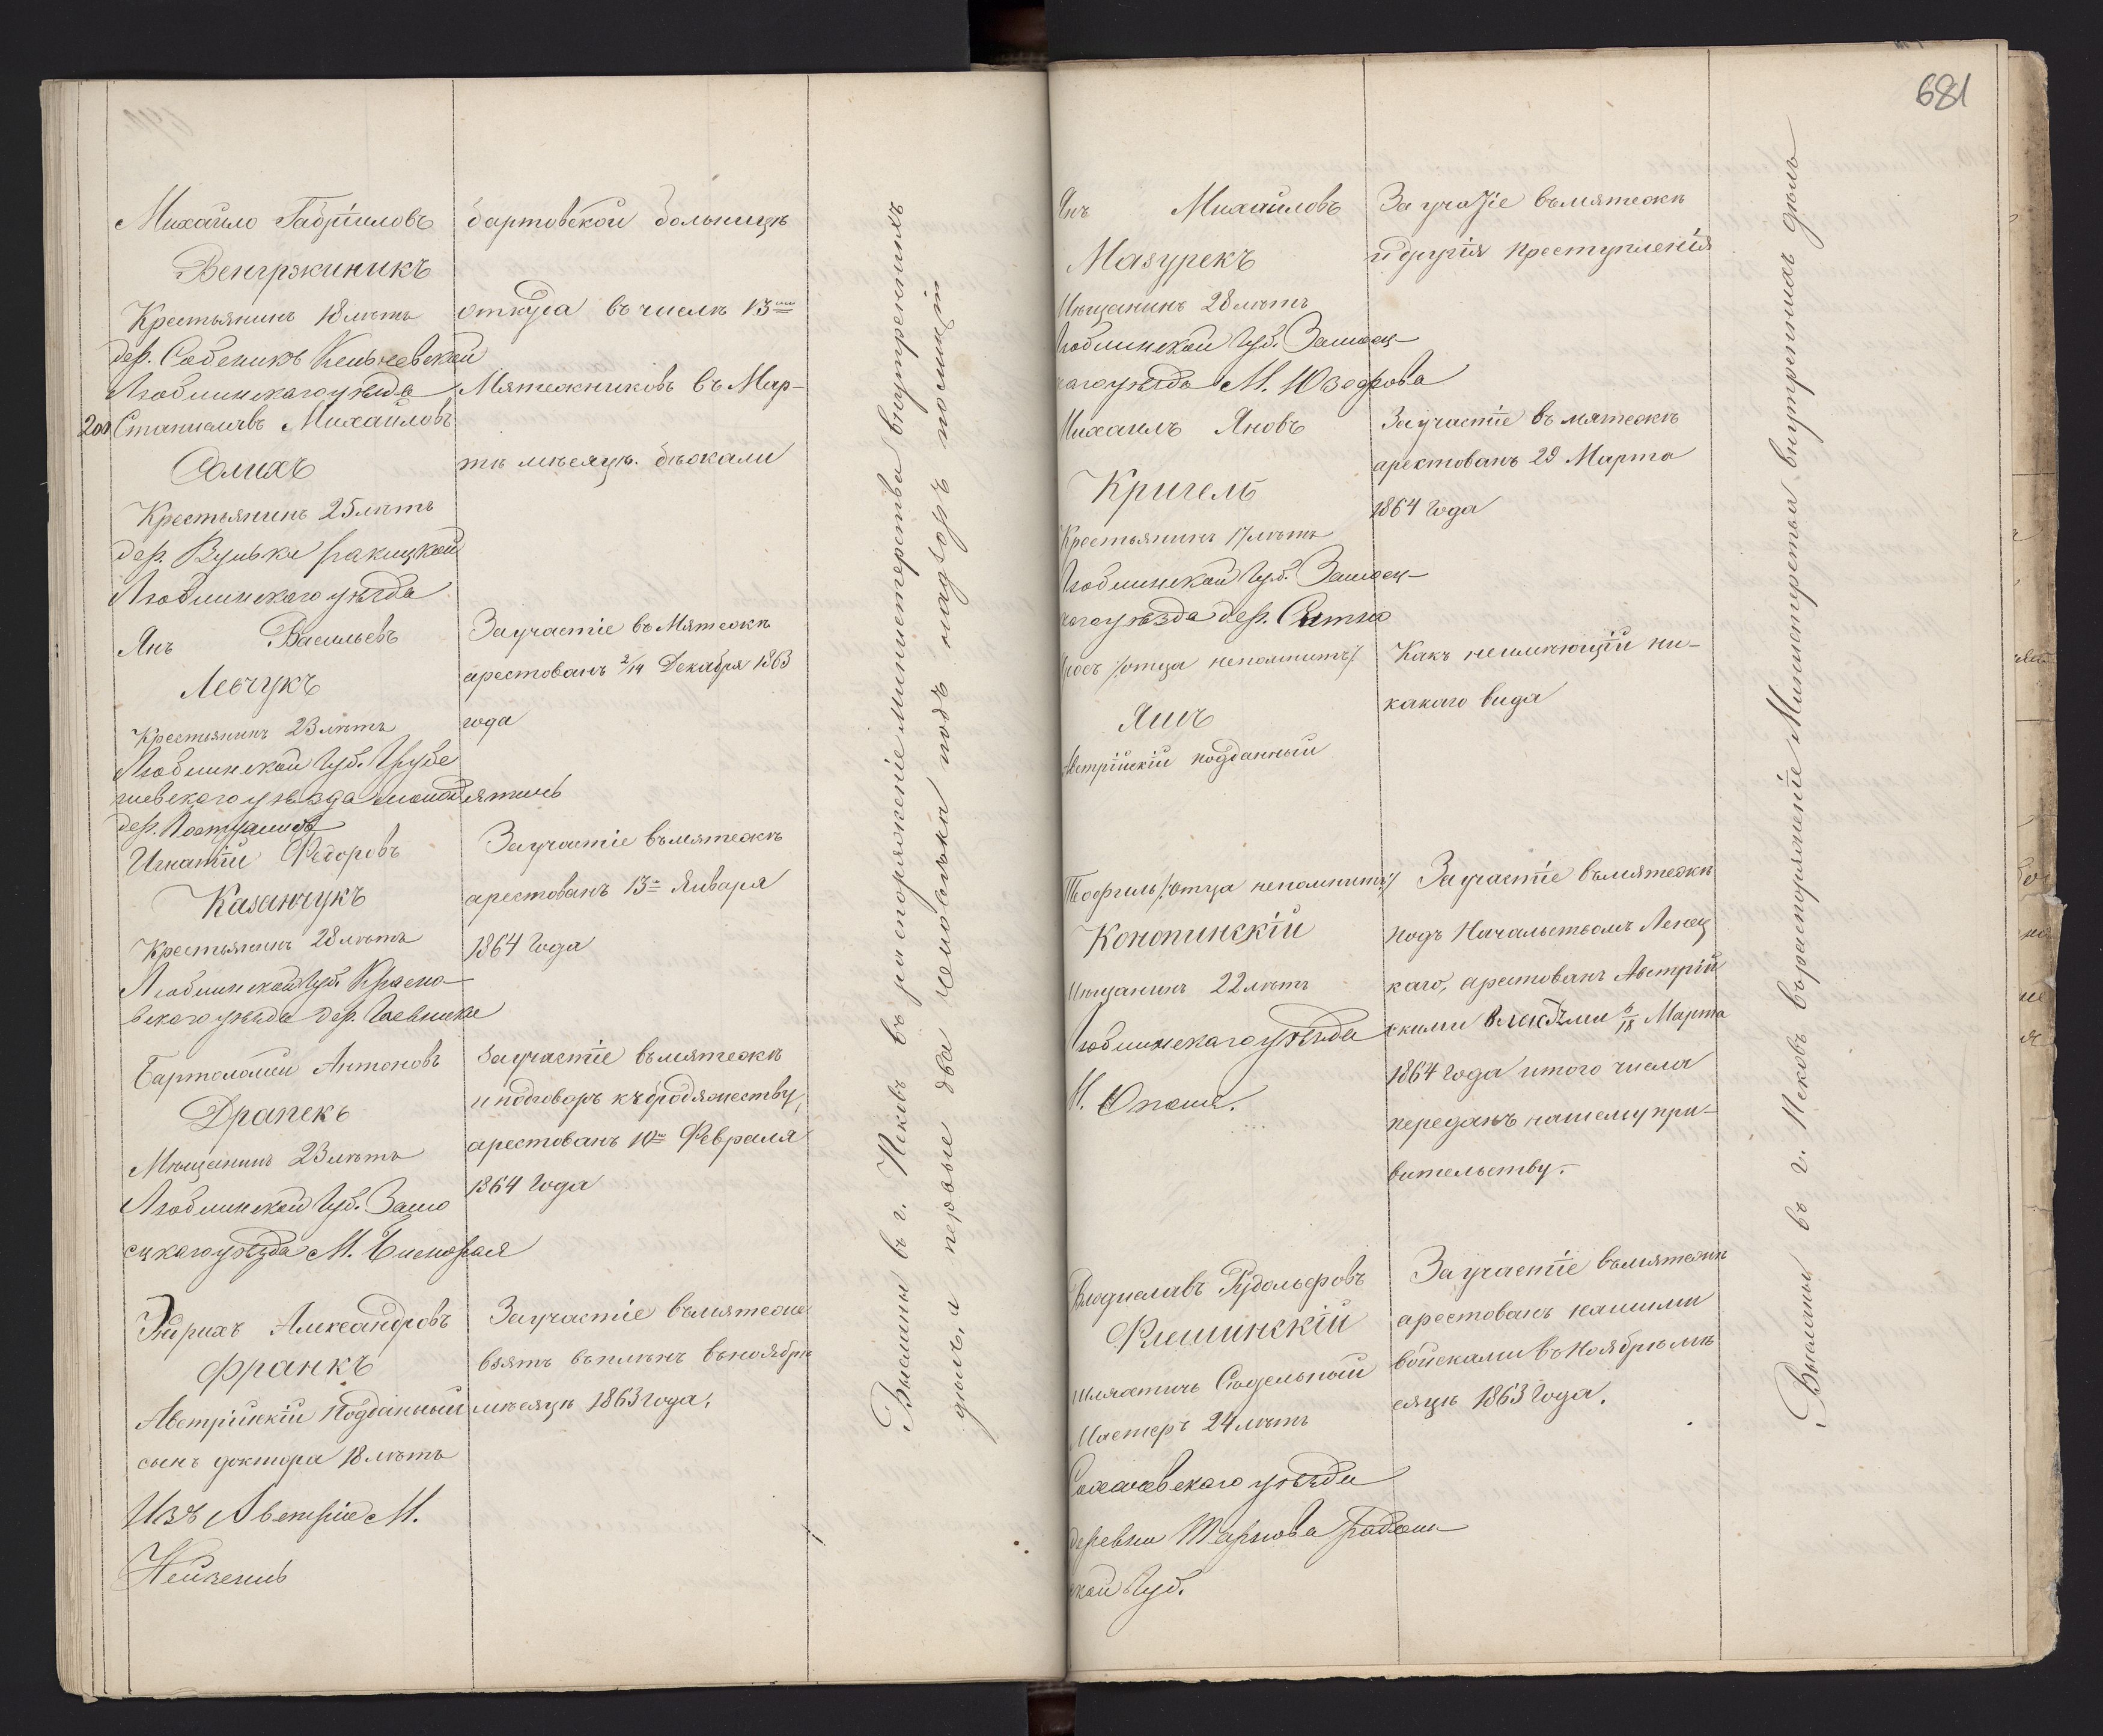 Михайло Габріиловъ
Венгржиникъ
Крестьянинъ 18 лѣтъ
дер. Собеникъ
Люблинскаго уѣзда
200 Станиславъ Михаиловъ
Солихъ
Крестьянинъ 25 лѣтъ
дер. Вулька Ракицкой
Люблинскаго уѣзда
Янъ Васильевъ
Левчукъ
Крестьянинъ 23 лѣтъ
Люблинской Губ. Грубе
шевскаго уѣзда
дер.
Игнатій Федоровъ
Казанчукъ
Крестьянинъ 28 лѣтъ
Люблинской Губ. Красно-
вскаго уѣзда дер.
Бартоломей Антоновъ
Драпекъ
Мѣщанинъ 23 лѣтъ
Люблинской Губ. Замо
сцкаго уѣзда М.
Генрихъ Александровъ
Франкъ
Австрійскій Подданный
сынъ доктора 18 лѣтъ
Изъ Австріи М.
бартовской больницѣ
откуда въ числѣ 13
Мятежниковъ въ Мар-
тѣ мѣсяцѣ. бѣжали
За участіе въ Мятежѣ
арестованъ 2/14 Декабря 1863
года
За участіе въ мятежѣ
арестованъ 13 Января
1864 Года
За участіе въ мятежѣ
и подговоръ къ бродяжеству,
арестованъ 10 Февраля
1864 Года
За участіе въ мятеже
взятъ въ плѣнъ въ ноябрѣ
мѣсяцѣ 1863 Года.
Высланы въ г. Псковъ въ распоряженіе министерства внутреннихъ
дѣлъ, а первые два человѣка подъ надзоръ полиціи
681
Янъ Михайловъ
Мазурекъ
Мѣщанинъ 28 лѣтъ
Люблинской Губ. Замосц-
каго уѣзда М. Юзефова
Михаилъ Яновъ
Кригель
Крестьянинъ 17 лѣтъ
Люблинской Губ. Замосц-
каго уѣзда дер.
/:отца непомнитъ:/
Яшъ
Австрійскій подданный
Теофиль /:отца непомнитъ:/
Конопинскій
Мѣщанинъ 22 лѣтъ
Люблинскаго уѣзда
М. Ополя.
Владиславъ Рудольфовъ
Флешинскій
шляхтичъ Сѣдельный
Мастеръ 24 лѣтъ
Сохачевскаго уѣзда
деревни Тарнова Радом-
ской Губ.
За участіе въ мятежѣ
и другія преступленія
За участіе въ мятежѣ
арестованъ 29 Марта
1864 Года
Какъ неимѣющій ни-
какаго вида
За участіе въ мятежѣ
подъ Начальствомъ Ленец
каго, арестованъ Австрій
скими властьми 6/18 Марта
1864 Года и того числа
переданъ нашему пра-
вительству.-
За участіе въ мятежѣ
арестованъ нашими
войсками въ Ноябрѣ мѣ
сяцѣ 1863 Года.
Высланы въ г. Псковъ въ распоряженіе Министерства внутреннихъ дѣлъ